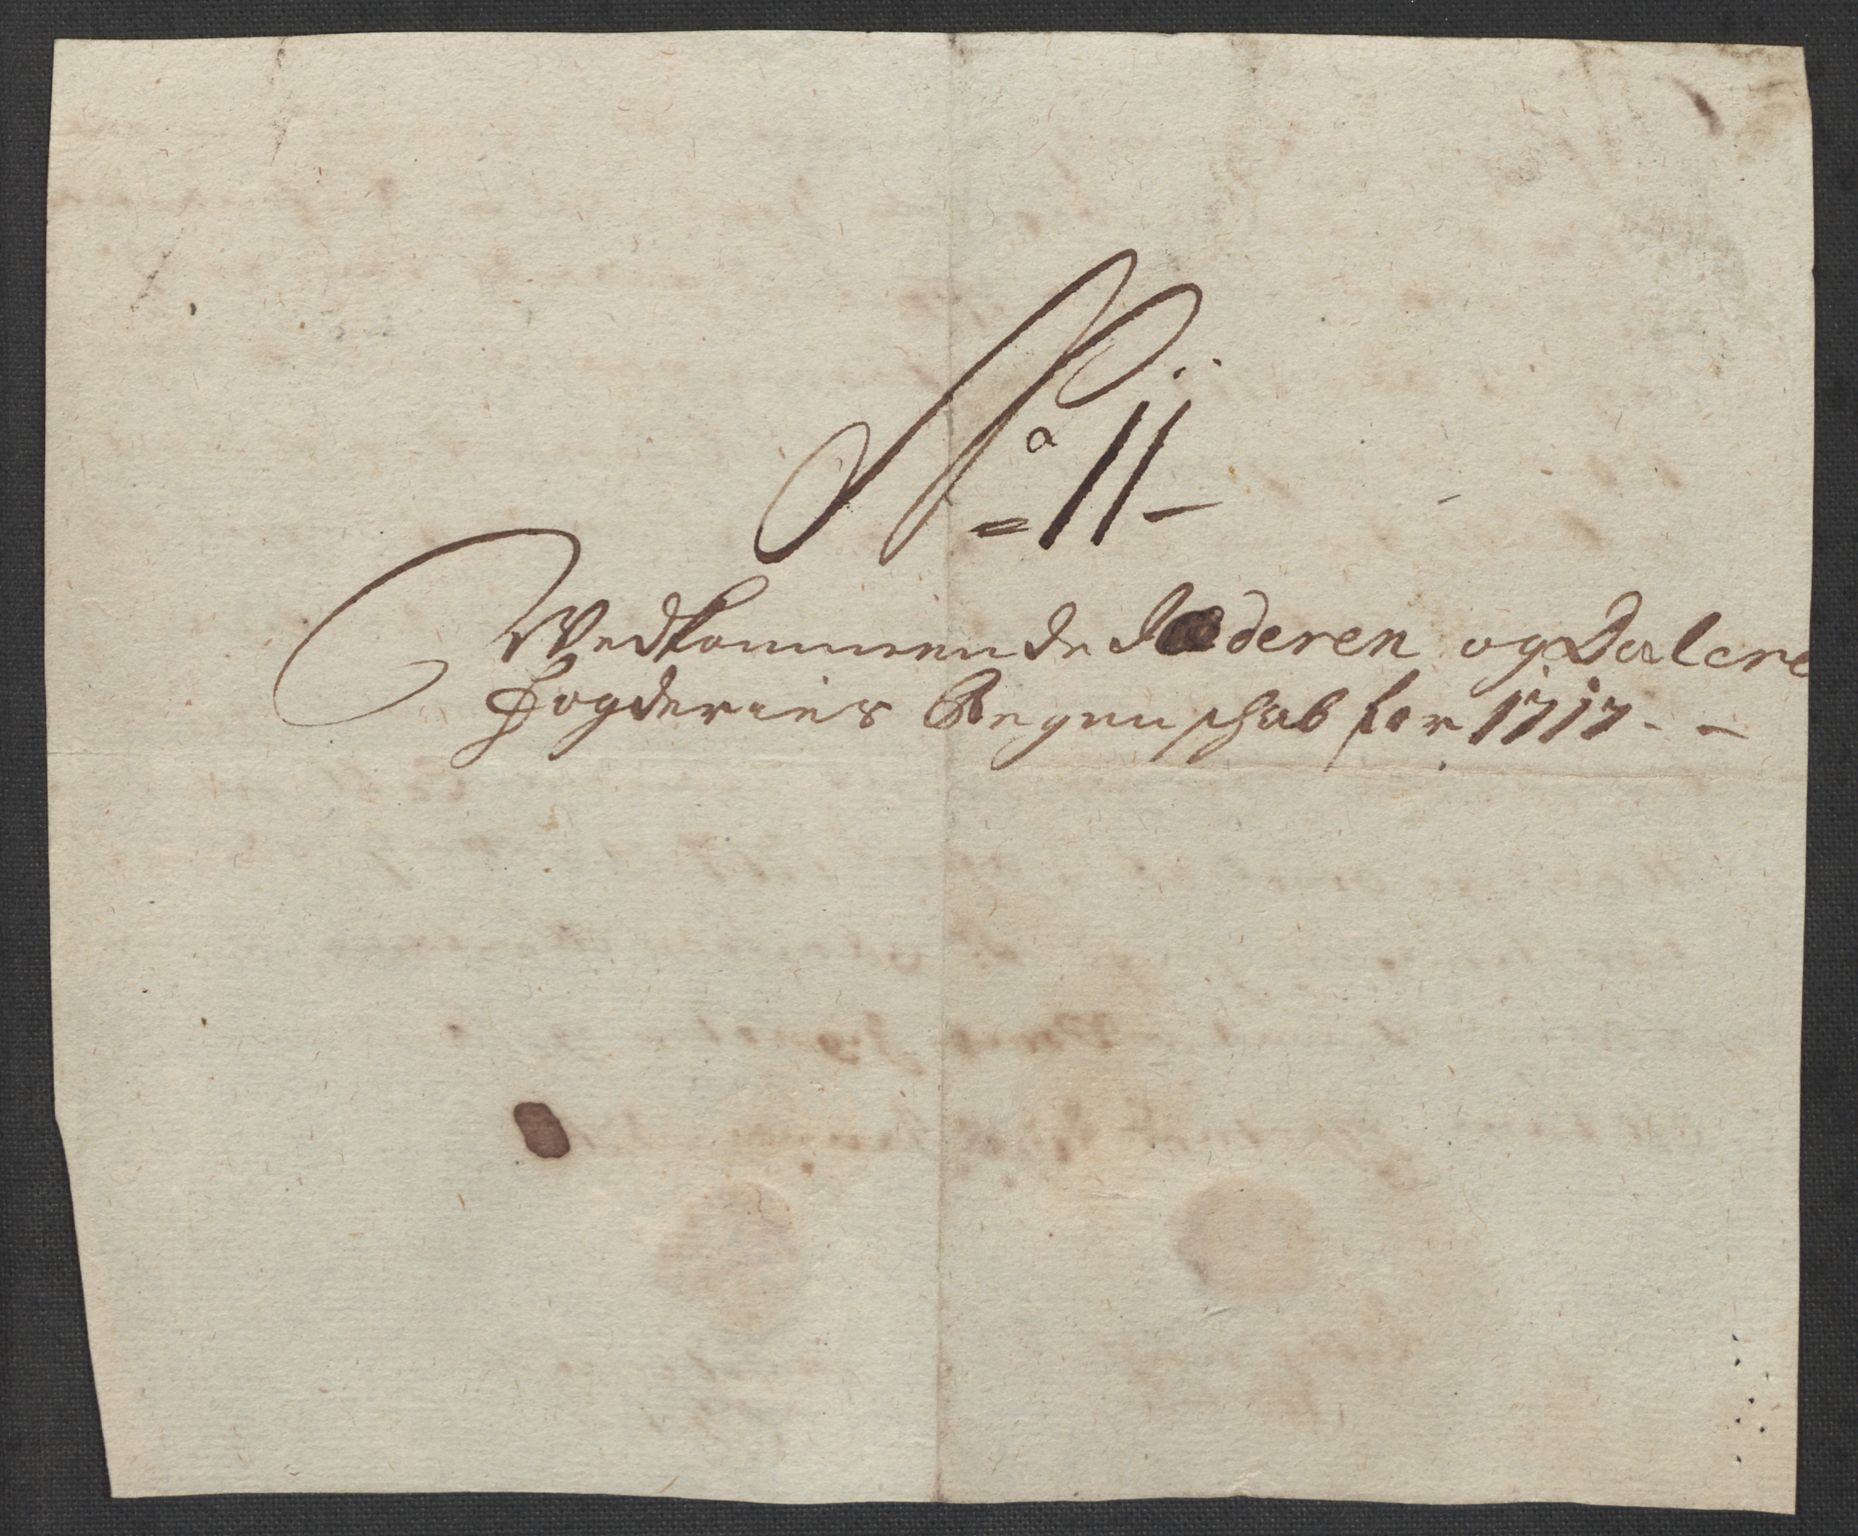 No 11
Vedkommende Jæderen og Dalerne
Fogderies Regenschab for 1717